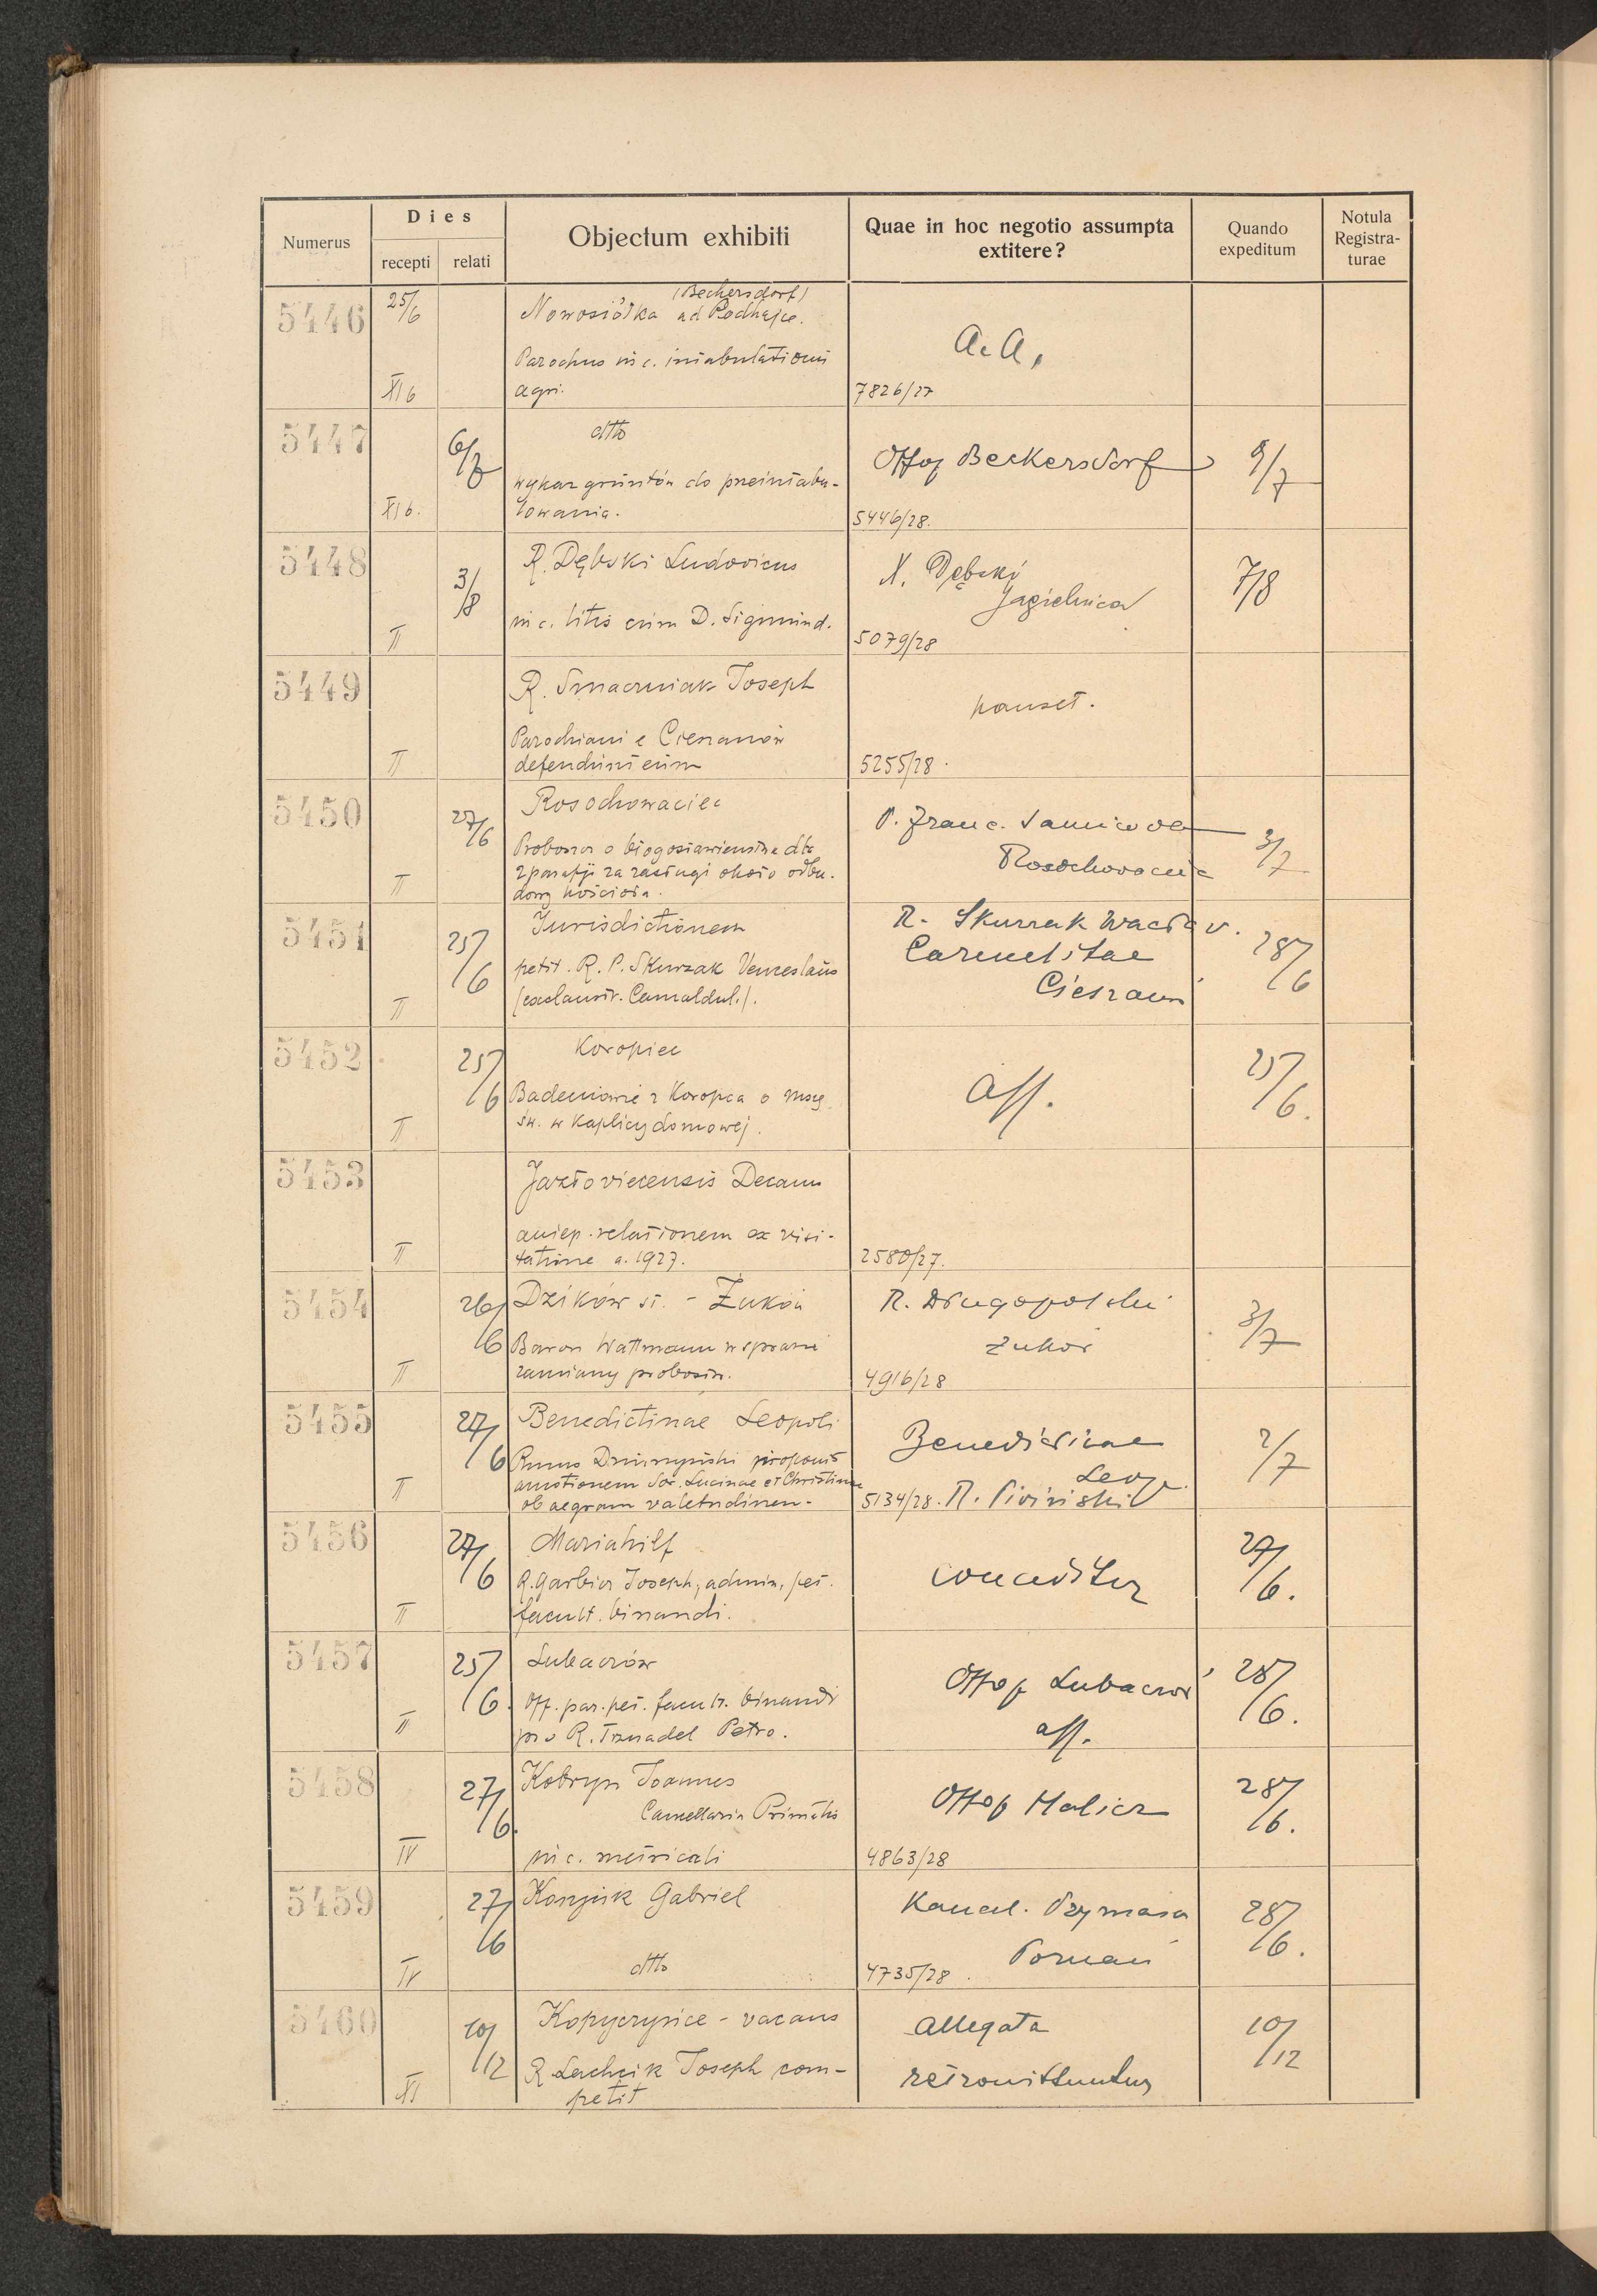 Numerus
Dies
recepti
relati
Objectum exhibiti
Quae in hoc negotio assumpta
extitere?
Quando
expeditum
Notula
Registra-
turae
5446
25/6
XI b
(Beckersdorf)
Nowosiółka ad Podhajce.
Parochus in c. intabulationi
agri.
a. a.
7826/27
5447
XI b.
6/7
dtto
wykaz gruntów do przeintabu-
lowania.
Offoq Beckersdorf
5446/28.
9/7
5448
II
3/8
R. Dębski Ludovicus
in c. litis cum D. Sigmund.
X. Dębski
Jagielnica
5079/28
7/8
5449
II
R. Smaczniak Joseph
Parochiani e Cieszanów
defendunt eum
5255/28.
5450
II
27/6
Rosochowaciec
Proboszcz o błogosławieństwo dla
2 parafji za zasługi około odbu-
dowy kościoła.
P. Franc.
Rosochowaciec
3/7
5451
II
25/6
Jurisdictionem
petit. R. P. Skurzak Venceslaus
(exclaustr. Camaldul.).
R. Skurzak Wacław.
Carmelitae
28/6
5452
II
25/6
Koropiec
Badeniowie z Koropca o mszę
św. w kaplicy domowej.
aff.
25/6.
5453
II
Jazłoviecensis Decanus
relationem ex visi-
tatione a. 1927.
2580/27.
5454
II
26/6
Dzików st. - Żuków
Baron Wattmann w sprawie
zamiany probostw.
R. Długopolski
Żuków
4916/28
3/7
5455
II
27/6
Benedictinae Leopoli
proponit
amotionem Sor. Lucinae et Christinae
ob aegram valetudinem.
Benedictinae
Leop.
5134/28. R.
2/7
5456
II
27/6
Mariahilf
R. Garbicz Joseph, admin. pet.
facult. binandi.
conceditur
27/6.
5457
II
25/6.
Lubaczów
Off. par. pet. facult. binandi
pro R. Trznadel Petro.
Offoq Lubaczów
aff.
28/6.
5458
IV
27/6.
Kobryn Joannes
Cancellaria Primatis
in c. metricali
Offoq Halicz
4863/28
28/6.
5459
IV
27/6
Gabriel
dtto
Kancel. Prymasa
Poznań
4735/28.
28/6.
5460
XI
10/12
Kopyczyńce - vacans
R. Lachcik Joseph com-
petit
allegata
retromittuntur
10/12